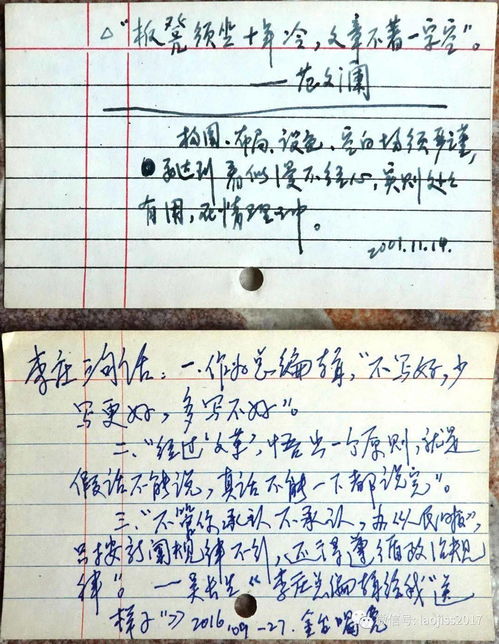 △"板凳须坐十年冷，文章不着一字空"。
——范文澜
构图、布局、设色、空白均须严谨，
要达到看似漫不经心，实则处处
有用，在情理之中。
2001.11.14.
李庄三句话：一.作为总编辑，"不写好，少
写更好，多写不好"。
二."经过'文革'，悟出一个原则，就是
假话不能说，真话不能一下都说完"。
三."不管你承认不承认，办《人民日报》，
只按新闻规律不行，还得遵循政治规
律"。——吴长生《李庄总编辑给我"送
样子"》2016.09-27.
微信号：laojiss2017